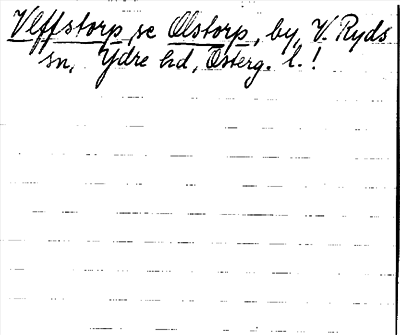 Vlffstorp se Olstorp, by, V. Ryds
sn, Ydre hd, Österg. l.!